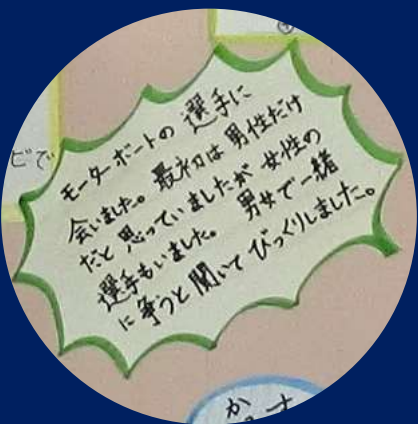 モーターボートの 選手に
会いました。最初は 男性だけ
だと思っていましたが 女性の
選手もいました。 男女で一緒
に争うと聞いてびっくりしました。
ビで